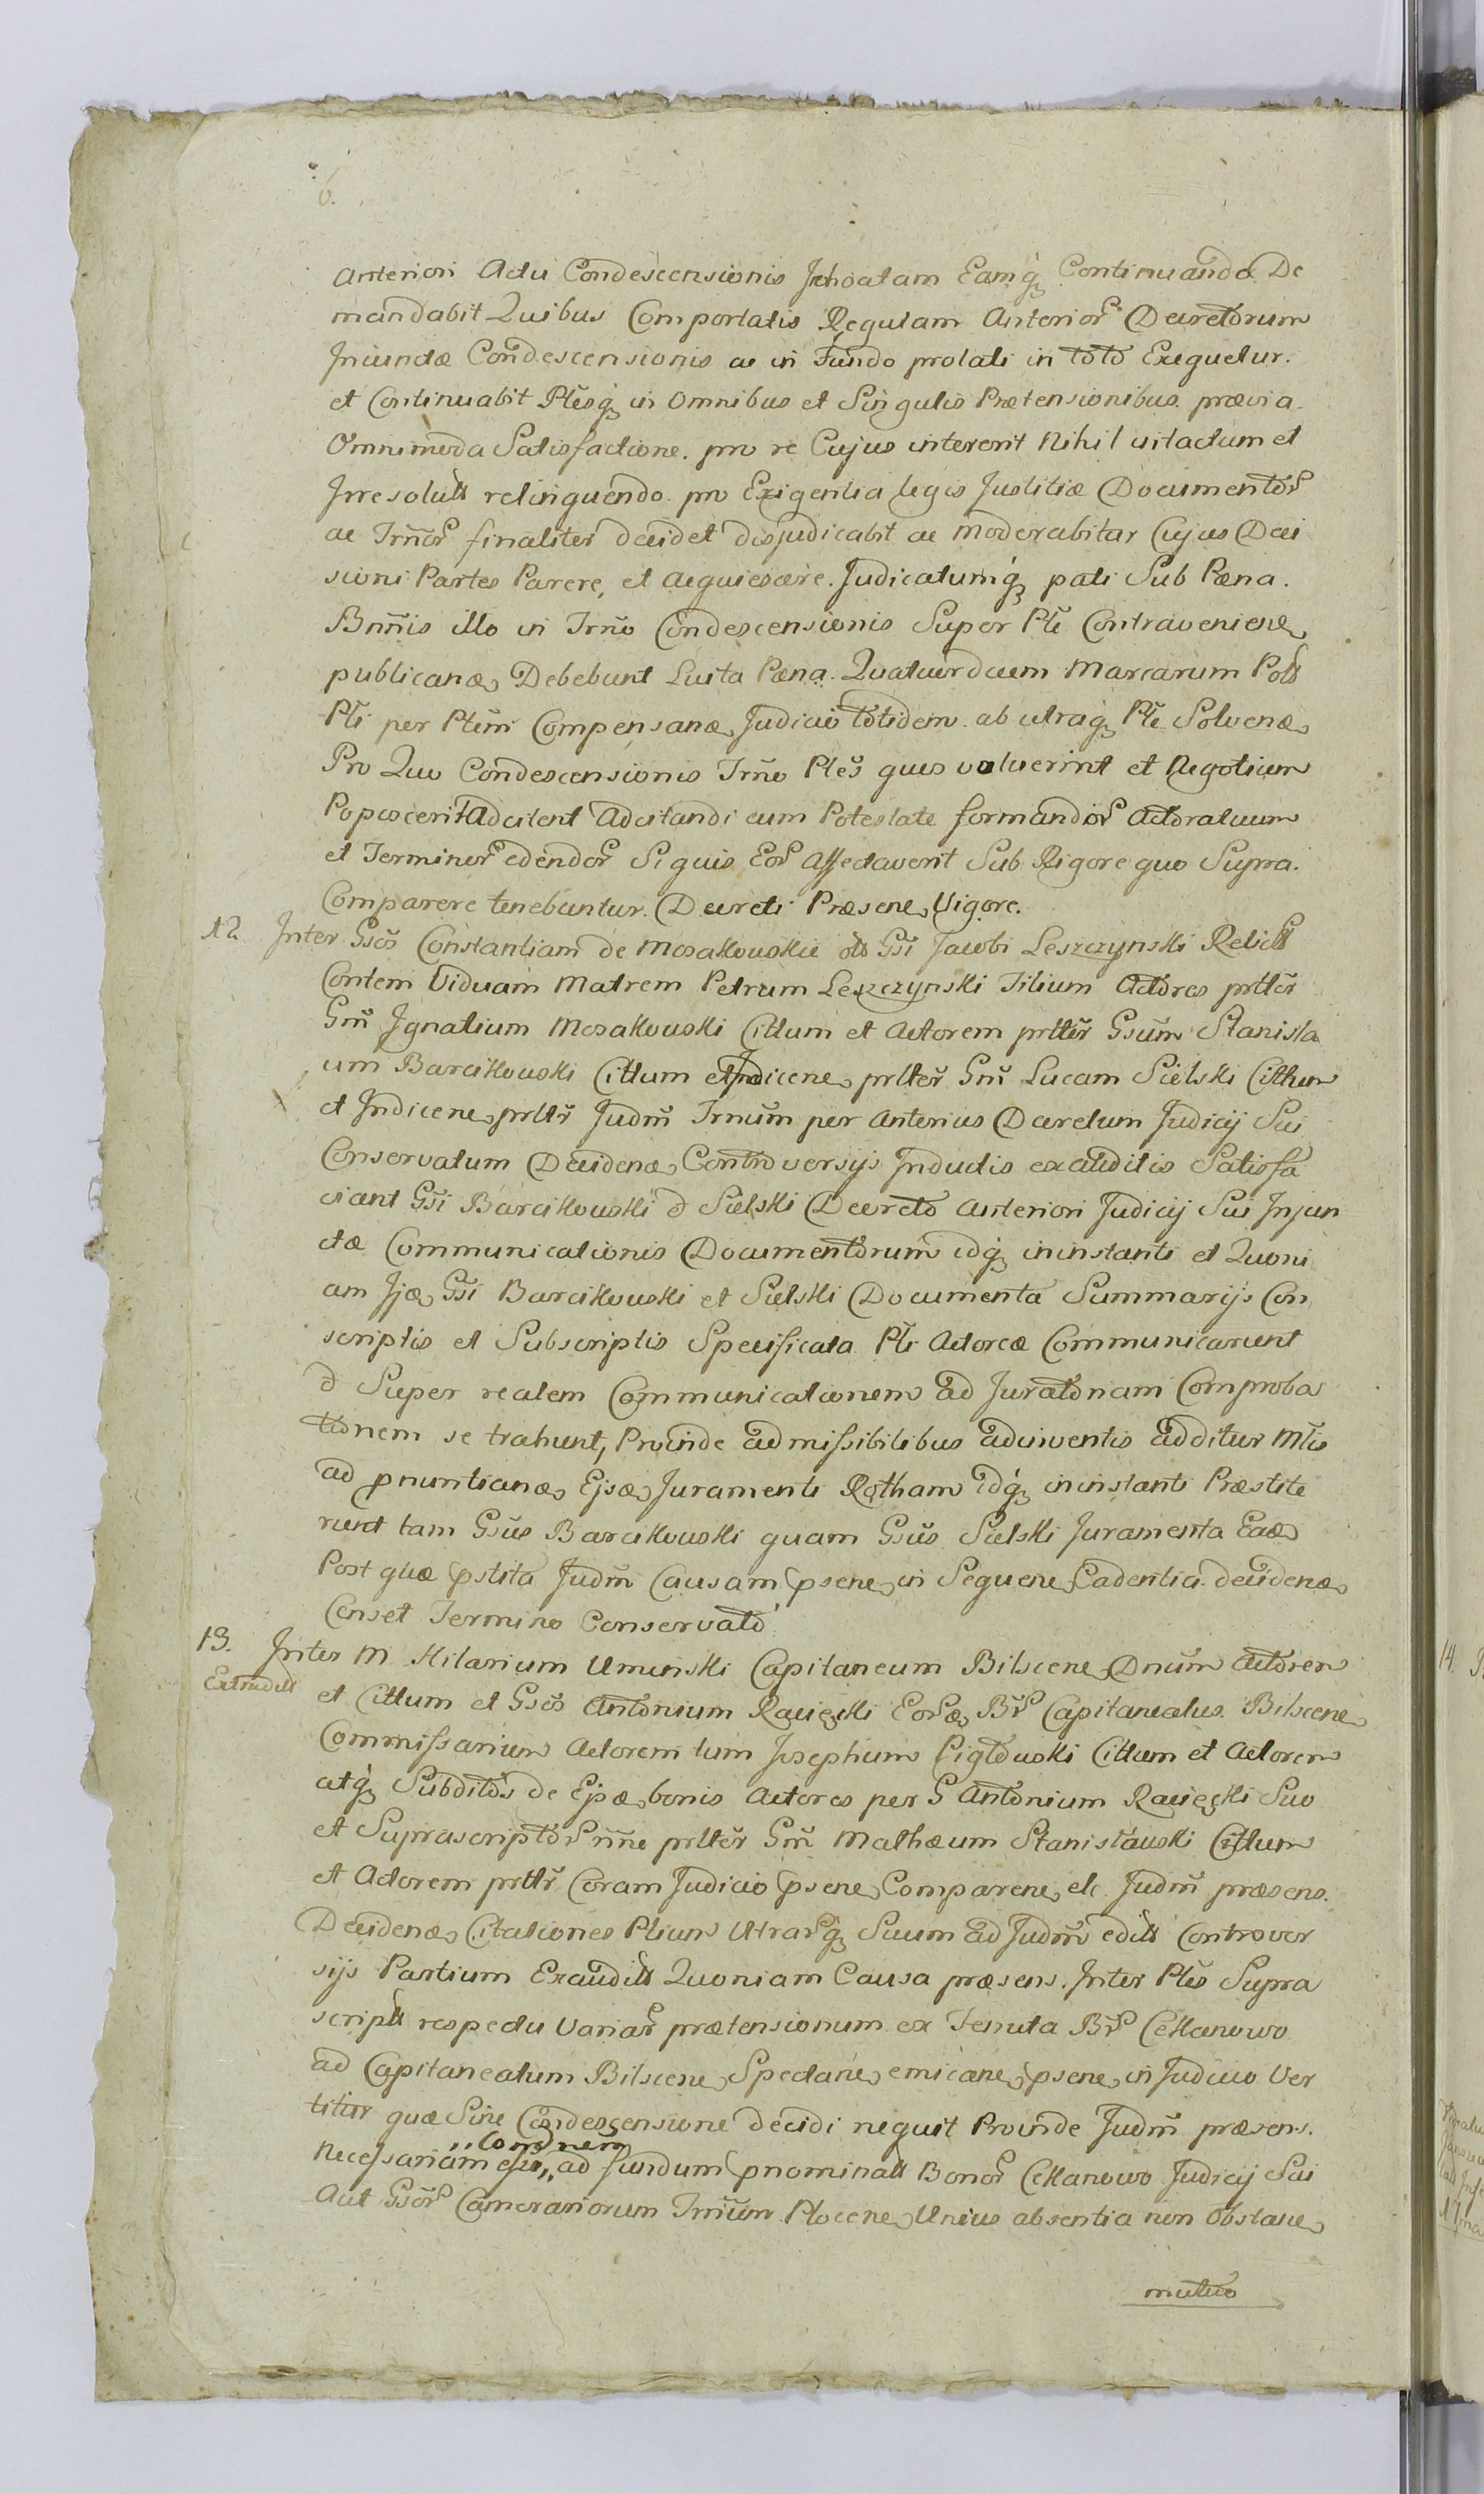 6.
Anteriori Actu Condescensionis Inhoatam Eamq3 Continuando De
mandabit Quibus Comportatis Regulam Anterior Decretorum
Iniunctæ Condescensionis ac in Fundo prolati in toto Exequetur.
et Continuabit Ptesq3 in Omnibus et Singulis Prætensionibus prævia
Omnimoda Satisfactione. pro re Cujus intererit Nihil intactum et
Irresolutt relinquendo pro Exigentia legis Justitiæ Documentor
ac Trnor finaliter decidet disjudicabit ac moderabitar Cujus Deci
sioni Partes Parere, et acquiescere. Judicatumq3 pati Sub Pæna.
Bnnis illo in Trno Condescensionis Super Pte Contraveniene
publicanæ Debebunt Luita Pæna Quatuordecem Marcarum Polt
Pti per Ptem Compensanæ Judicio totidem ab utraq3 Pte Solvenæ
Pro Quo Condescensionis Trno Ptes quos voluerint et Negotium
Poposcerit Adcitent Adcitandi cum Potestate formandor Actoratuum
et Terminor edendor Si quis Eor Affectaverit Sub Rigore quo Supra.
Comparere tenebuntur Decreti Præsene Vigore.
12. Inter Gsos Constantiam de Mosakowskie olt Gsi Jacobi Leszczynski Relictt
Contem Viduam Matrem Petrum Leszczynski Filium Actores prtter
Gm Ignatium Mosakowski Cittum et Actorem prtter Gsum Stanisla
um Barcikowski Cittum et Indicene prtter Gm Lucam Sielski Cittum
et Indicene prttr Judm Trnum per Anterius Decretum Judicij Sui
Conservatum Decidenæ Controversijs Inductis exauditis Satisfa
ciant Gsi Barcikowski et Sielski Decreto Anteriori Judicij Sui Injun
ctæ Communicationis Documentorum idq3 ininstanti et Quoni
am Ijæ Gsi Barcikowski et Sielski Documenta Summarijs Con
scriptis et Subscriptis Specificata Pti Actoreæ Communicarunt
et Super realem Communicationem ad Juratoriam Comproba
tionem se trahunt, Proinde admissibilibus adinventis additur Mtis
ad pnuntianæ Ejsæ Juramenti Rotham idq3 ininstanti Præstite
runt tam Gsus Barcikowski quam Gsus Sielski Juramenta Eaæ
Post quæ pstita Judm Causam psene in Sequene Cadentia decidenæ
Censet Termino Conservato
13. Inter M Hilarium Uminski Capitaneum Bilscene Dnum Actorem
Extradtt
et Cittum et Gsos Antonium Racięcki Eoræ Br Capitaneatus Bilscene
Commissarium Actorem tum Josephum Pigłowski Cittum et Actorem
atq3 Subditos de Ejsæ bonis Actores per G Antonium Racięcki Suo
et Suprascriptor nne prtter Gm Mathæum Stanisławski Cittum
et Actorem prttr Coram Judicio psene Comparene etc Judm præsens.
Decidenæ Citationes Ptium Utrarq3 Suum ad Judm editt Controver
sijs Partium Exauditt Quoniam Causa præsens. Inter Ptes Supra
scriptt respectu Variar prætensionum ex Tenuta Br Cekanowo
ad Capitaneatum Bilscene Spectane emicane psene in Judicio Ver
titur quæ Sine Condescensione decidi nequit Proinde Judm præsens.
Condnem
Necessariam esse ad fundum pnominatt Bonor Cekanowo Judicij Sui
Aut Gsor Camerariorum Trnum Plocene Unius absentia non Obstane
mutuo